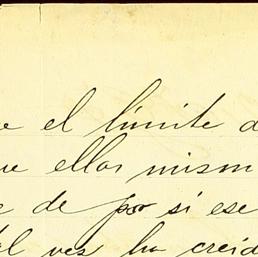 e el límite d
ue ellas mism
e de por si ese
al vez ha creid